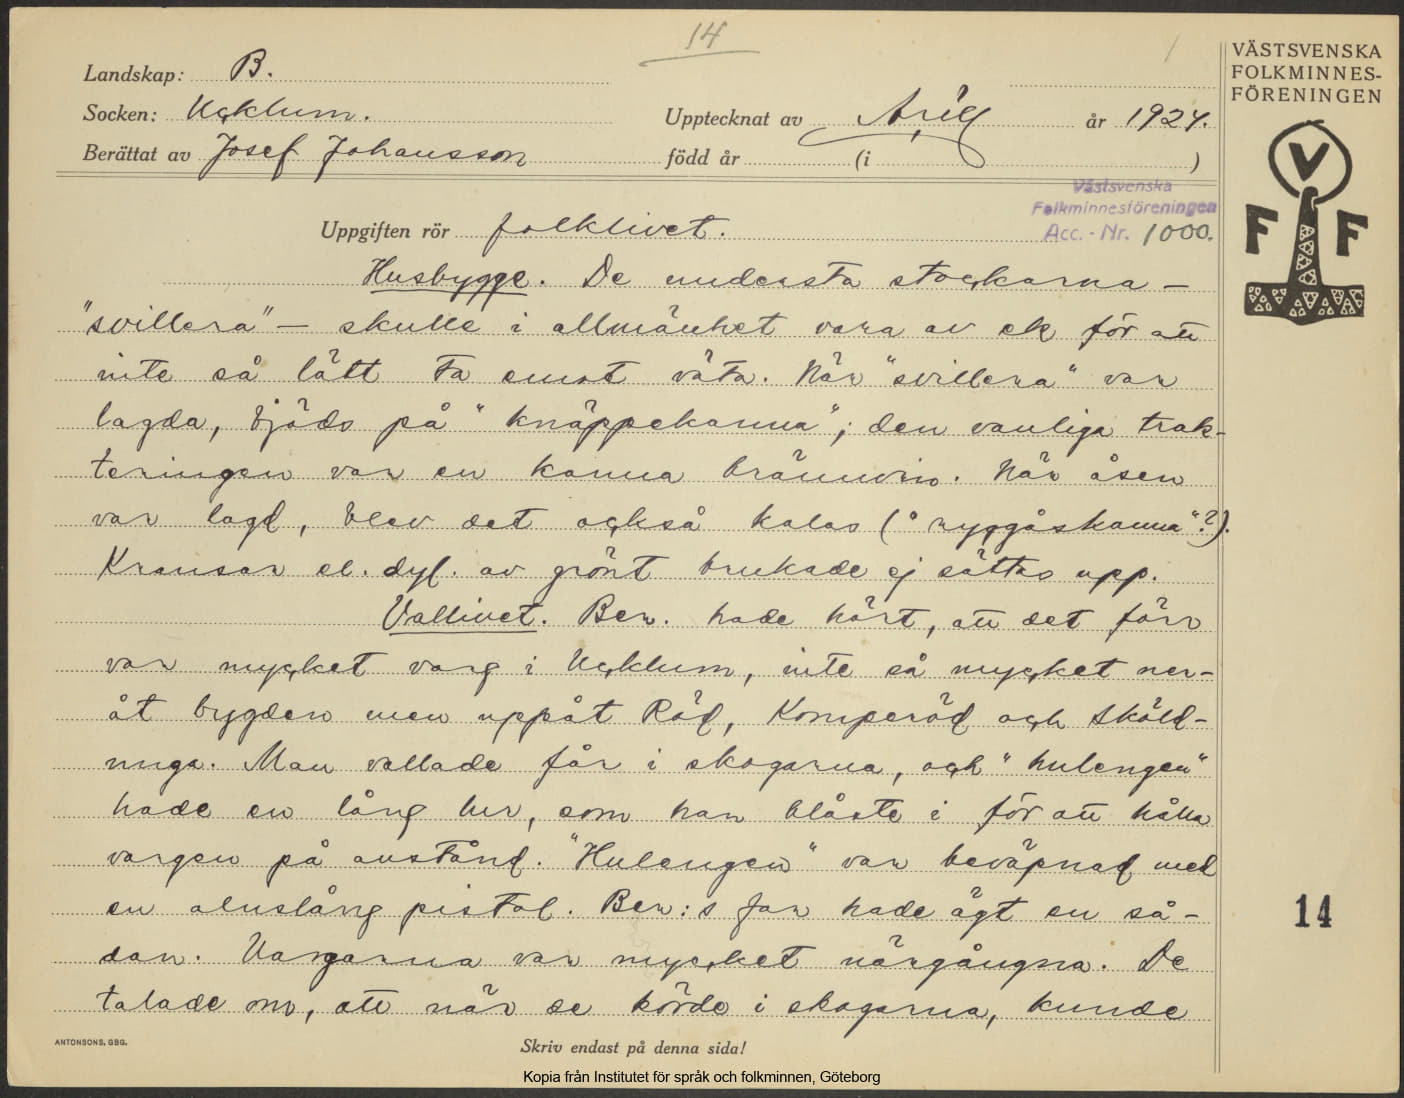 14
Landskap: B.
Socken: Ucklum.
Berättat av Josef Johansson
Upptecknat av Arill år 1924.
född år (i )
VÄSTSVENSKA
FOLKMINNES-
FÖRENINGEN
V
F F
Västsvenska
Folkminnesföreningen
Acc. - Nr. 1000.
Uppgiften rör folklivet.
Husbygge. De understa stockarna –
"svillera" – skulle i allmänhet vara av ek för att
inte så lätt ta emot väta. När "svillera" var
lagda, bjöds på "knäppekanna"; den vanliga trak-
teringen var en kanna brännvin. När åsen
var lagd, blev det också kalas ("ryggåskanna"?).
Kransar el. dyl. av grönt brukade ej sättas upp.
Vallivet. Ber. hade hört, att det förr
var mycket varg i Ucklum, inte så mycket ner-
åt bygden men uppåt Röd, Komperöd och Sköld-
unga. Man vallade får i skogarna, och "hulengen"
hade en lång lur, som han blåste i för att hålla
vargen på avstånd. "Hulengen" var beväpnad med
en alnslång pistol. Ber:s far hade ägt en så-
dan. Vargarna var mycket närgångna. De
talade om, att när de körde i skogarna, kunde
14
ANTONSONS, GBG.
Skriv endast på denna sida!
Kopia från Institutet för språk och folkminnen, Göteborg